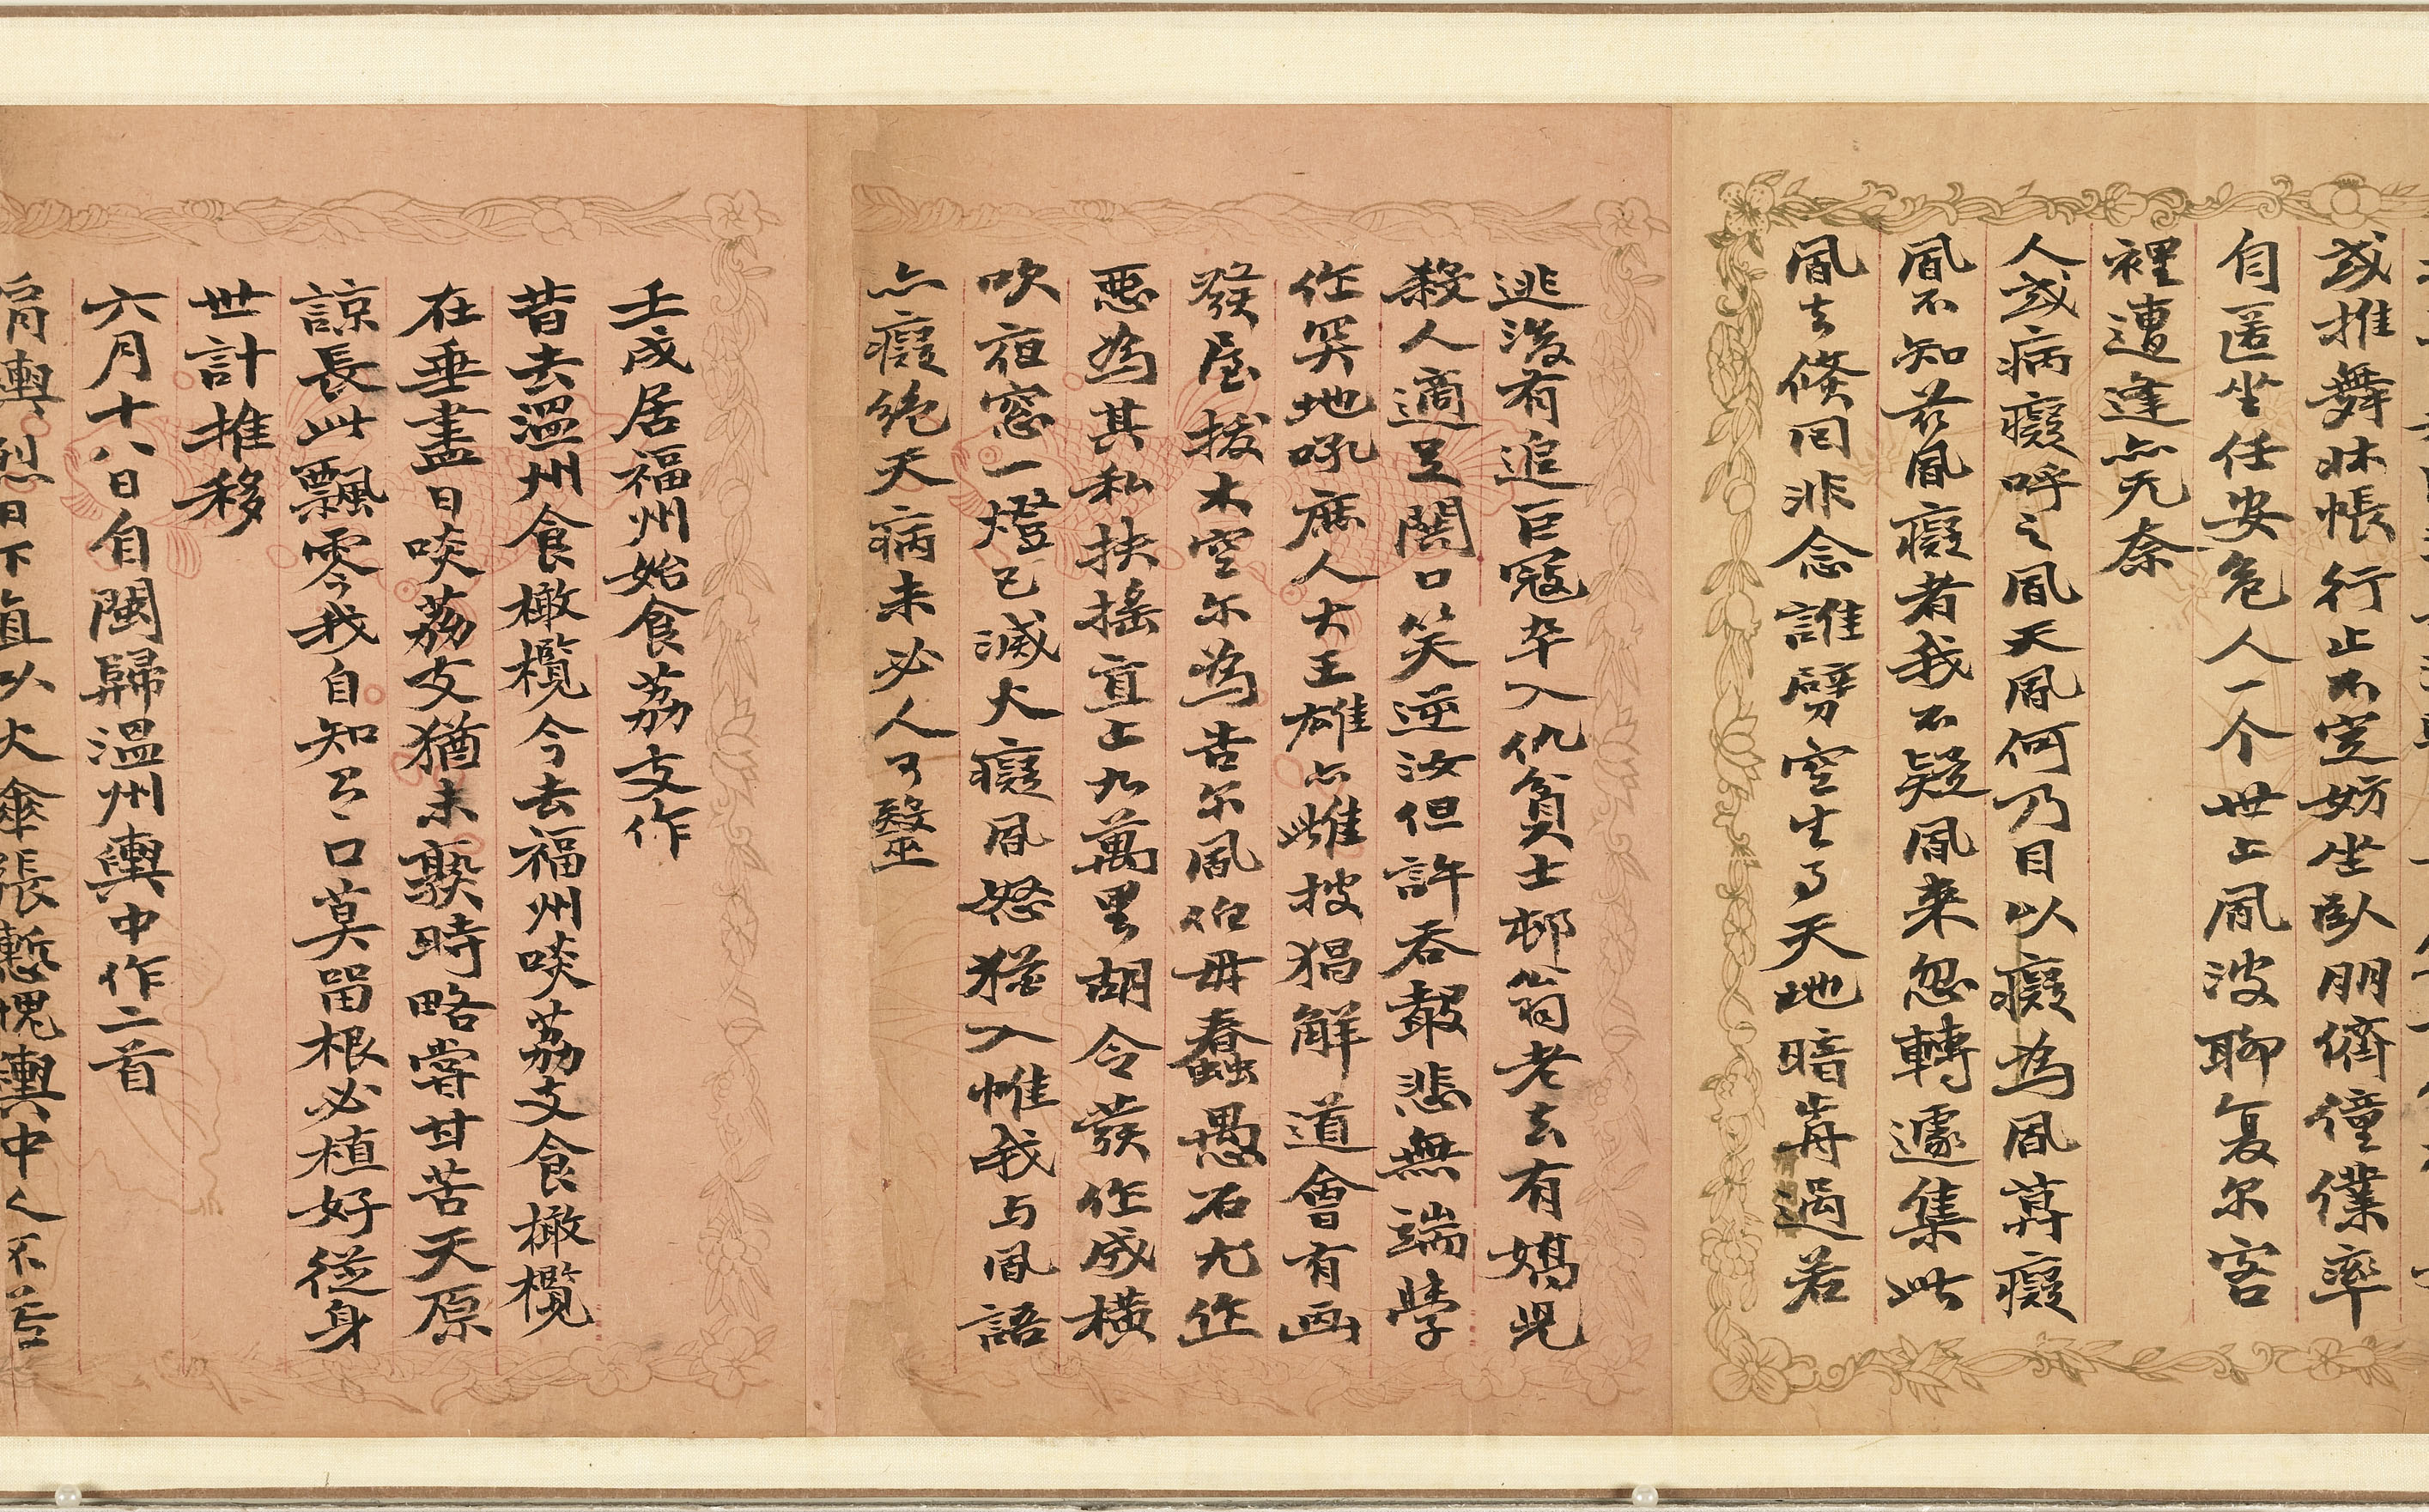 或推舞牀帳行止不定妨坐臥朋儕僮僕率
自匿坐任安危人一个世上風波聊复尔窓
裡遭逢亦无奈
人或病癡呼之風天風何乃目以癡為風莽癡
風不知茲風癡者我不疑風来忽轉遽集此
風去倏囘非念誰劈空生了天地暗耑過若
逃後有追巨寇卒入仇貧士邨翁老去有嬌児
殺人適足闊口笑逆汝但許吞聲悲無端學
作哭地吼庶人大王雄亦雌披猖解道會有画
發屋拔木空尔為告尔風伯毋蠢愚石尤作
惡為其私扶搖直上九萬里胡令發作成橫
吹宿窓一燈已滅大癡風怒猶入帷我与風語
亦癡絶天病未必人可毉
壬戌居福州始食荔支作
昔去溫州食橄欖今去福州啖荔支食橄欖
在垂盡日啖荔支猶未熟時略嘗甘苦天原
諒長此飄零我自知哆口莫留根必植好從身
世計推移
六月十八日自閩歸溫州輿中作二首
肩輿烈日下直以火傘張慙愧輿中人不苦